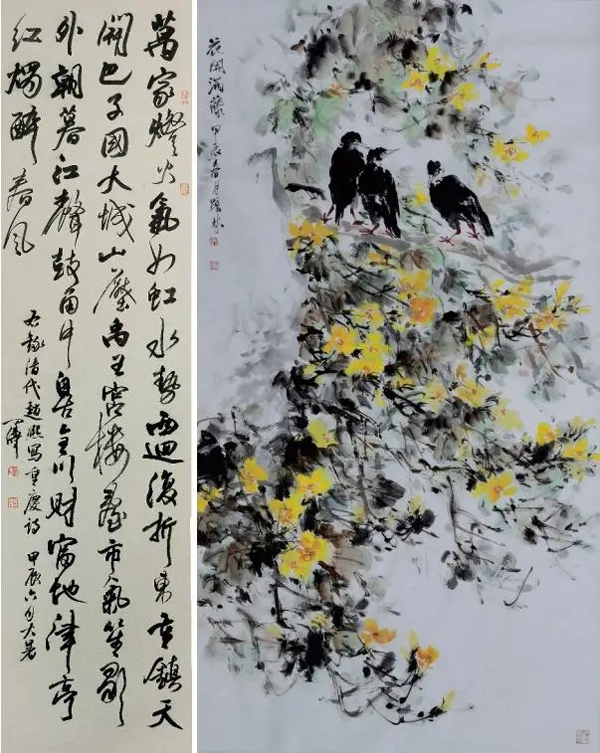 萬家燈火氣如虹水勢西迴復折東重鎮天
開巴子國大城山壓禹王宮樓臺市氣笙歌
外朝暮江聲鼓角中自是全川財富地津亭
紅燭醉春風
右錄清代趙熙寫重慶詩 甲辰六月大暑
花開滿藤 甲辰春月